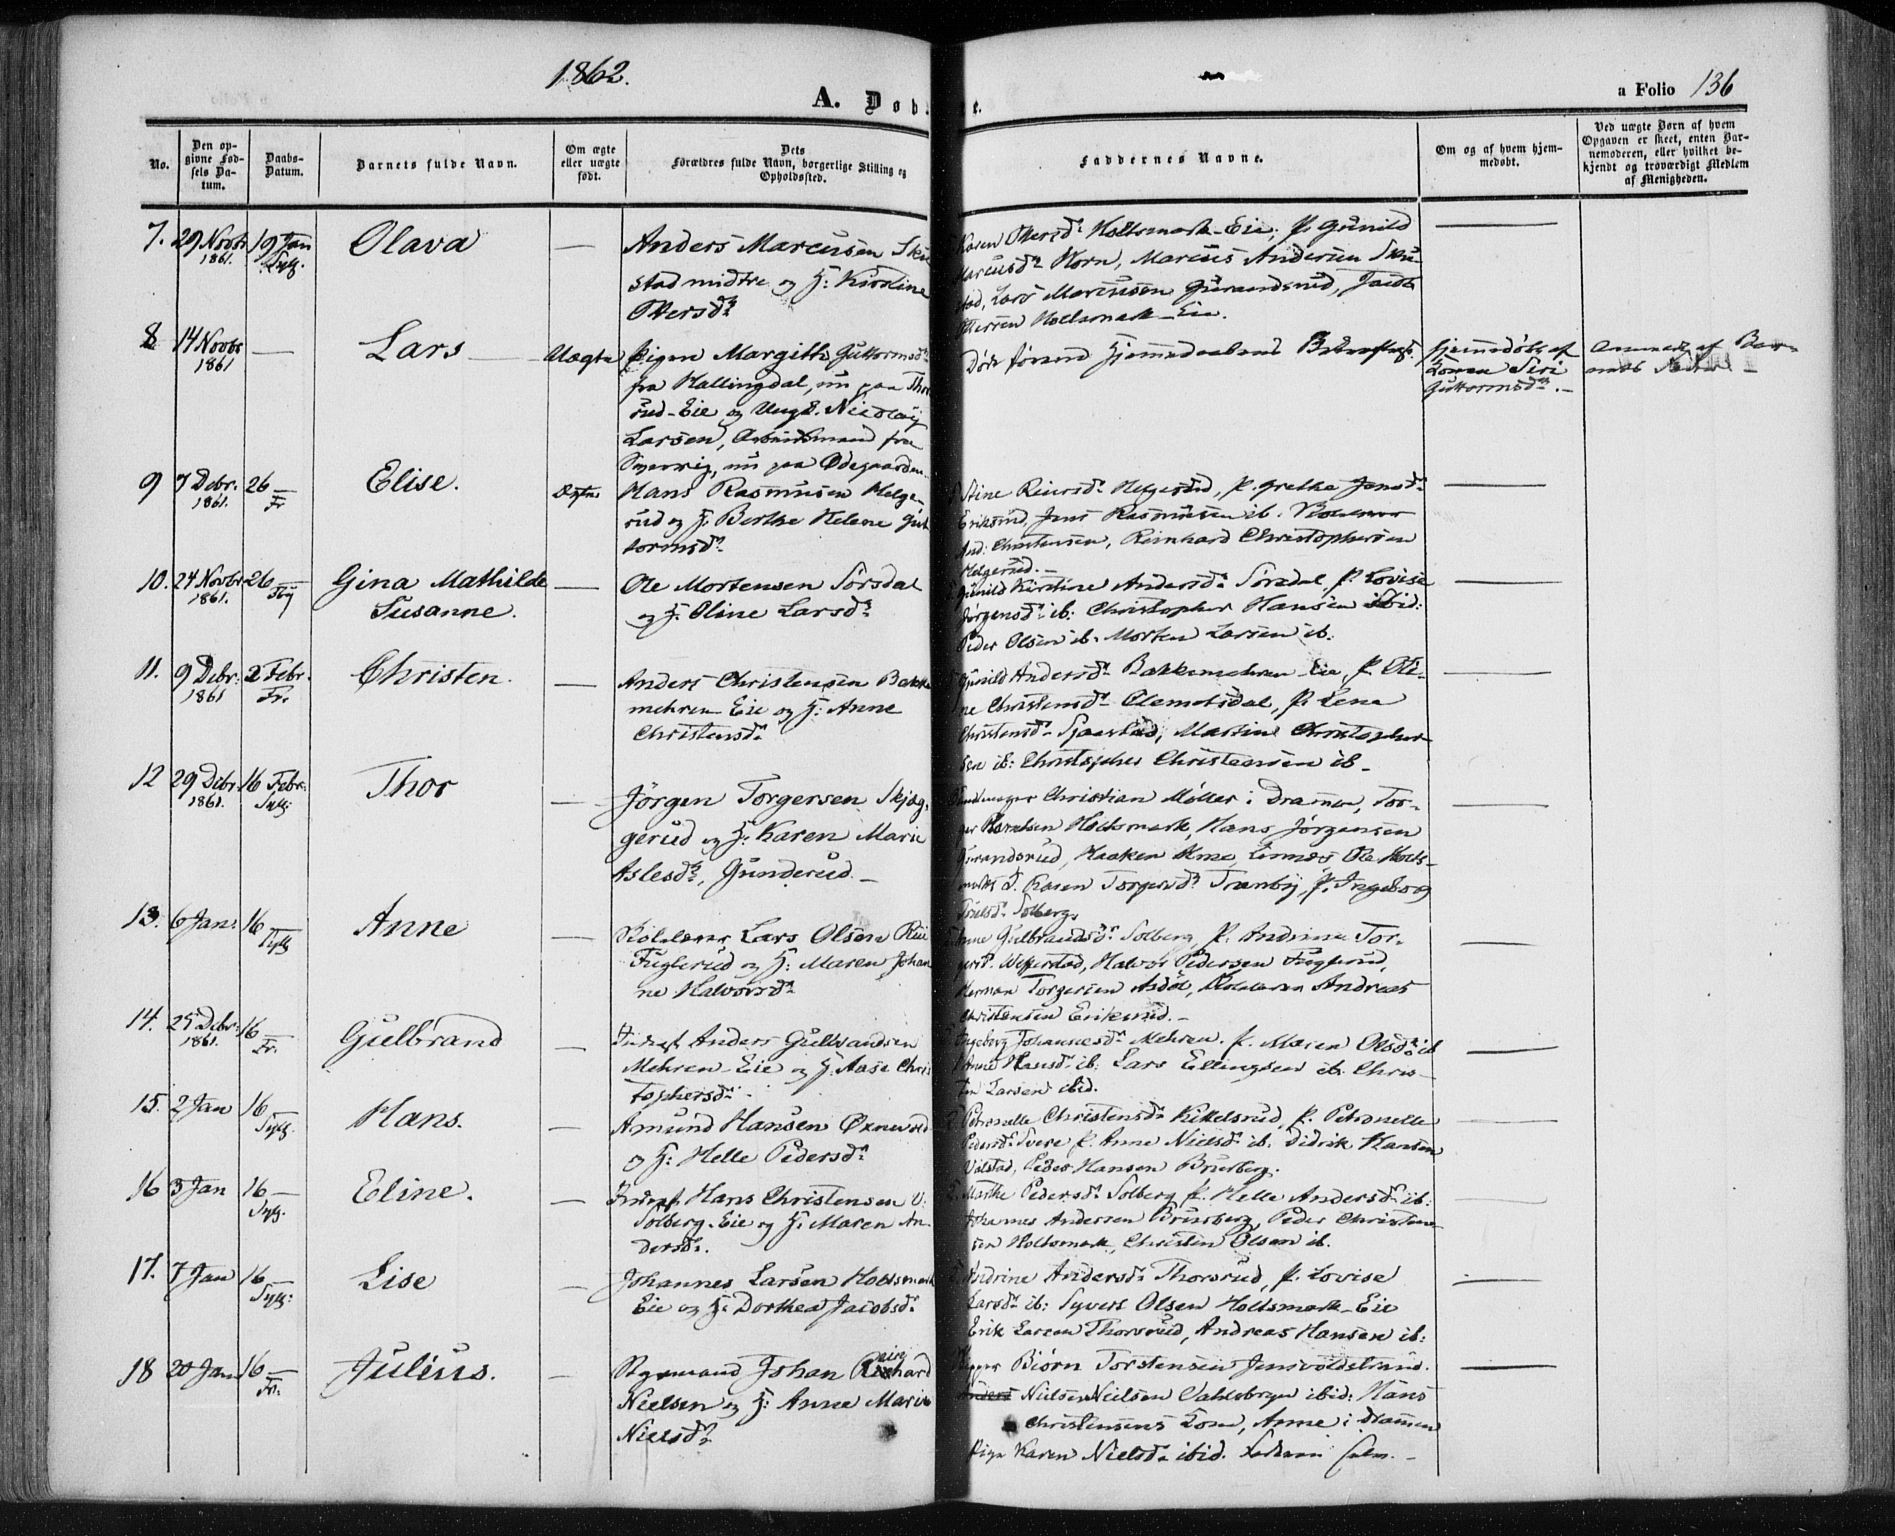 1862.
A. Døbte.
a Folio 136
No.
Den opgivne Fødsels Datum.
Daabs-Datum.
Barnets fulde Navn.
Om ægte eller uægte født.
Dets Forældres fulde Navn, borgerlige Stilling og Opholdssted.
Faddernes Navne.
Om og af hvem hjemmedøbt.
Ved uægte Børn af hvem Opgaven er skeet, enten Barnemoderen, eller hvilket bekjendt og troværdigt Medlem af Menigheden.
7. 29 Novbr 1861. 19 Jan Sylg. Olava —
Anders Marcussen
stad midtre og H: Karoline
Ottersdr
Karen Ottersdr Holtsmark-Eie, P. Gunild
Marcusdr Horn, Marcus Andersen
stad, Lars Marcussen Gurandsrud, Jacob
Holtsmark-Eie.
8 14 Novbr 1861 — Lars — Uægte
Pigen Margith Guttormsdr
fra Hallingdal, nu paa Thor
rud-Eie og Ungk. Nicolay
Larsen, Arbeidsmand fra
nu paa Ødegaarden
Døde førend Hjemmedaabens
Hjemmedøbt af
Konen Siri
Guttormsdr. —
9 7 Debr. 1861. 26 — Fr Elise. Ægte
Hans Rasmusen Helge-
rud og H. Berthe Helene Gut
tormsdr
Stine Reiersdr Helgerud, P. Grethe Jensdr
Eriksrud, Jens Rasmussen ib.
And: Christensen, Reinhard Christophersen
Helgerud. —
10. 24 Novbr 1861. 26 — Gina Mathilde
Susanne. —
Ole Mortensen Sørsdal
og H. Oline Larsdr
Gunild Kirstine Andersdr Sørsdal, P. Lovise
Jørgensdr ib: Christopher Hansen ibid:
Peder Olsen ib. Morten Larsen ib.
11. 9 Debr. 1861 2 Febr. Fr. Christen. —
Anders Christensen Bakke
mehren Eie og H: Anne
Christensdr
Gunild Andersdr Bakkemehren Eie, P. Oli-
ne Christensdr Clemetsdal, P. Lena
Christensdr Sjaastad, Martin Christopher-
sen ib: Christopher Christensen ib —
12 29 Debr. 1861. 16 Febr. Sylg: Thor —
Jörgen Torgersen Skjøg-
gerud og H: Karen Marie
Aslesdr, Gunderud. —
Christian Møller i Drammen, Tor-
ger Holtsmark, Hans Jörgensen
Gurandsrud, Haaken Ole Holts-
mark P. Karen Torgersdr Tranby, P. Ingeborg
Solberg.
13. 6 Jan: 16 — Sylg Anne —
Lars Olsen
Fuglerud og H: Maren Johan
ne Halvorsdr
Anne Gulbrandsdr Solberg, P. Andrine Tor-
Halvor Pedersen Fuglerud,
Herman Torgersen Andreas
Christensen Eriksrud. —
14. 25 Debr. 1861. 16 — Fr. Gulbrand —
Inderst Anders Gulbrandsen
Mehren-Eie og H: Aase Chris
tophersdr.
Ingeborg Johannesdr Mehren. P. Maren Olsdr ib
Anne Hansdr ib: Lars Ellingsen ib. Chris-
ten Larsen ibid.
15. 2 Jan 16 — Sylg. Hans. —
Amund Hansen Øxne
og H: Helle Pedersdr
Petronelle Christensdr Kittelsrud, P. Petronelle
Pedersdr Svere P. Anne Nielsdr ib. Didrik Hansen
Peder Hansen Bruberg.
16 3 Jan 16 — Sylg. Eline. —
Inderst Hans Christensen
Solberg-Eie og H. Maren An-
dersdr.
Marthe Pedersdr Solberg P. Helle Andersdr ib:
Johannes Andersen Bruberg, Peder Christen-
sen Holtsmark, Christen Olsen ib.
17. 7 Jan 16 — Sylg: Lise —
Johannes Larsen Holtsmark
Eie og H: Dorthea Jacobsdr
Andrine Andersdr Thorsrud, P. Lovise
Larsdr ib: Syvert Olsen Holtsmark-Eie
Erik Larsen Thorsrud, Andreas Hansen ib:
18 20 Jan 16 — Fr: Julius. —
Johan Reinhard
Nielsen og H: Anne Marie
Nielsdr
Biørn Torstensen
Nielsen Nielsen ibid: Hans
Christensens Kone, Anne i Drammen
Pige Karen Nielsdr ibid. Faderen selv. —